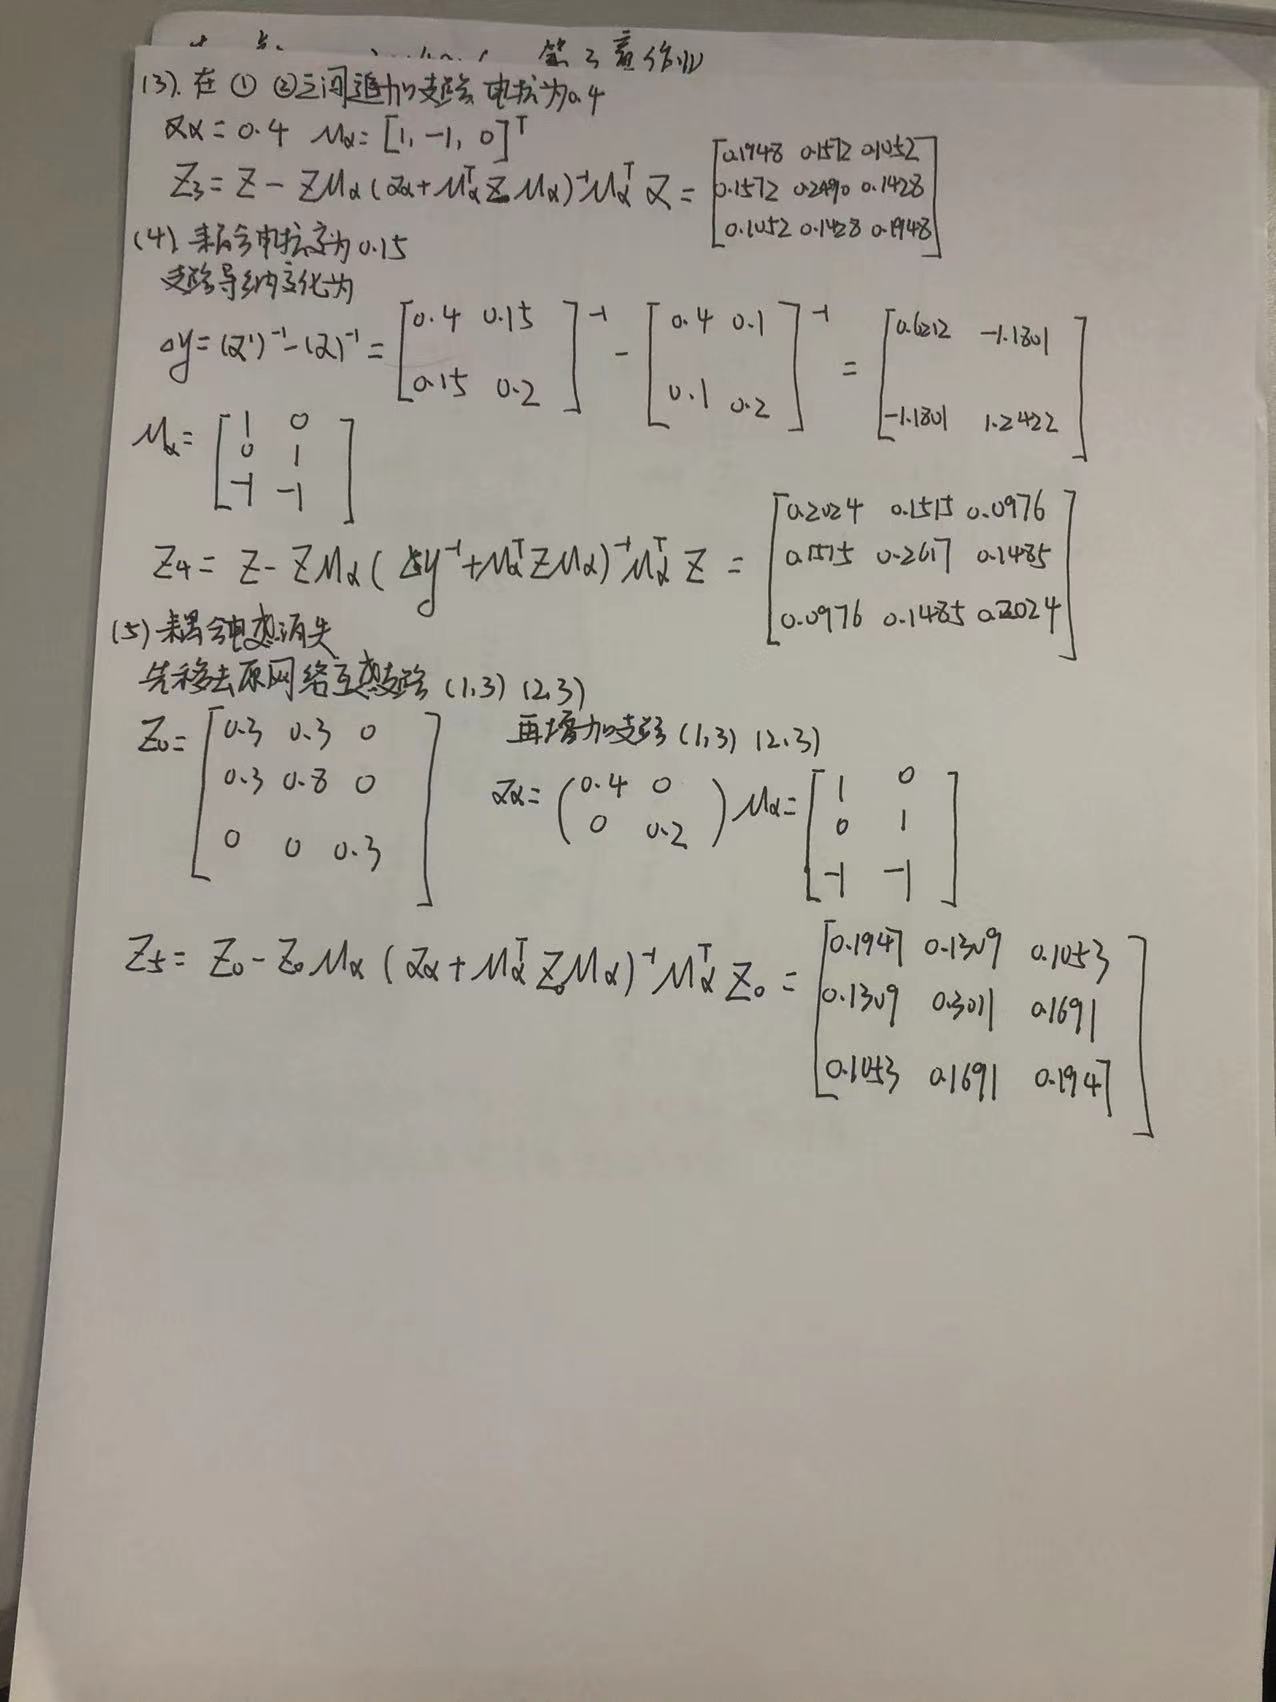 第3章作业
(3). 在①②之间追加支路 电抗为0.4
Zα = 0.4 Mα = [1, -1, 0]ᵀ
Z₃ = Z - ZMα(Zα + MαᵀZMα)⁻¹MαᵀZ = [0.1948 0.1572 0.1052
0.1572 0.2490 0.1428
0.1052 0.1428 0.1948]
(4) 耦合电抗变为0.15
支路导纳变化为
Δy = (Z')⁻¹ - (Z)⁻¹ = [0.4 0.15
0.15 0.2]⁻¹ - [0.4 0.1
0.1 0.2]⁻¹ = [0.6212 -1.1801
-1.1801 1.2422]
Mα = [1 0
0 1
-1 -1]
Z₄ = Z - ZMα(Δy⁻¹ + MαᵀZMα)⁻¹MαᵀZ = [0.2024 0.1515 0.0976
0.1515 0.2617 0.1485
0.0976 0.1485 0.2024]
(5) 耦合电抗消失
先移去原网络互感支路 (1,3) (2,3)
Z₀ = [0.3 0.3 0
0.3 0.8 0
0 0 0.3]
再增加支路 (1,3) (2,3)
Zα = (0.4 0
0 0.2) Mα = [1 0
0 1
-1 -1]
Z₅ = Z₀ - Z₀Mα(Zα + MαᵀZ₀Mα)⁻¹MαᵀZ₀ = [0.1947 0.1309 0.1053
0.1309 0.3011 0.1691
0.1053 0.1691 0.1947]